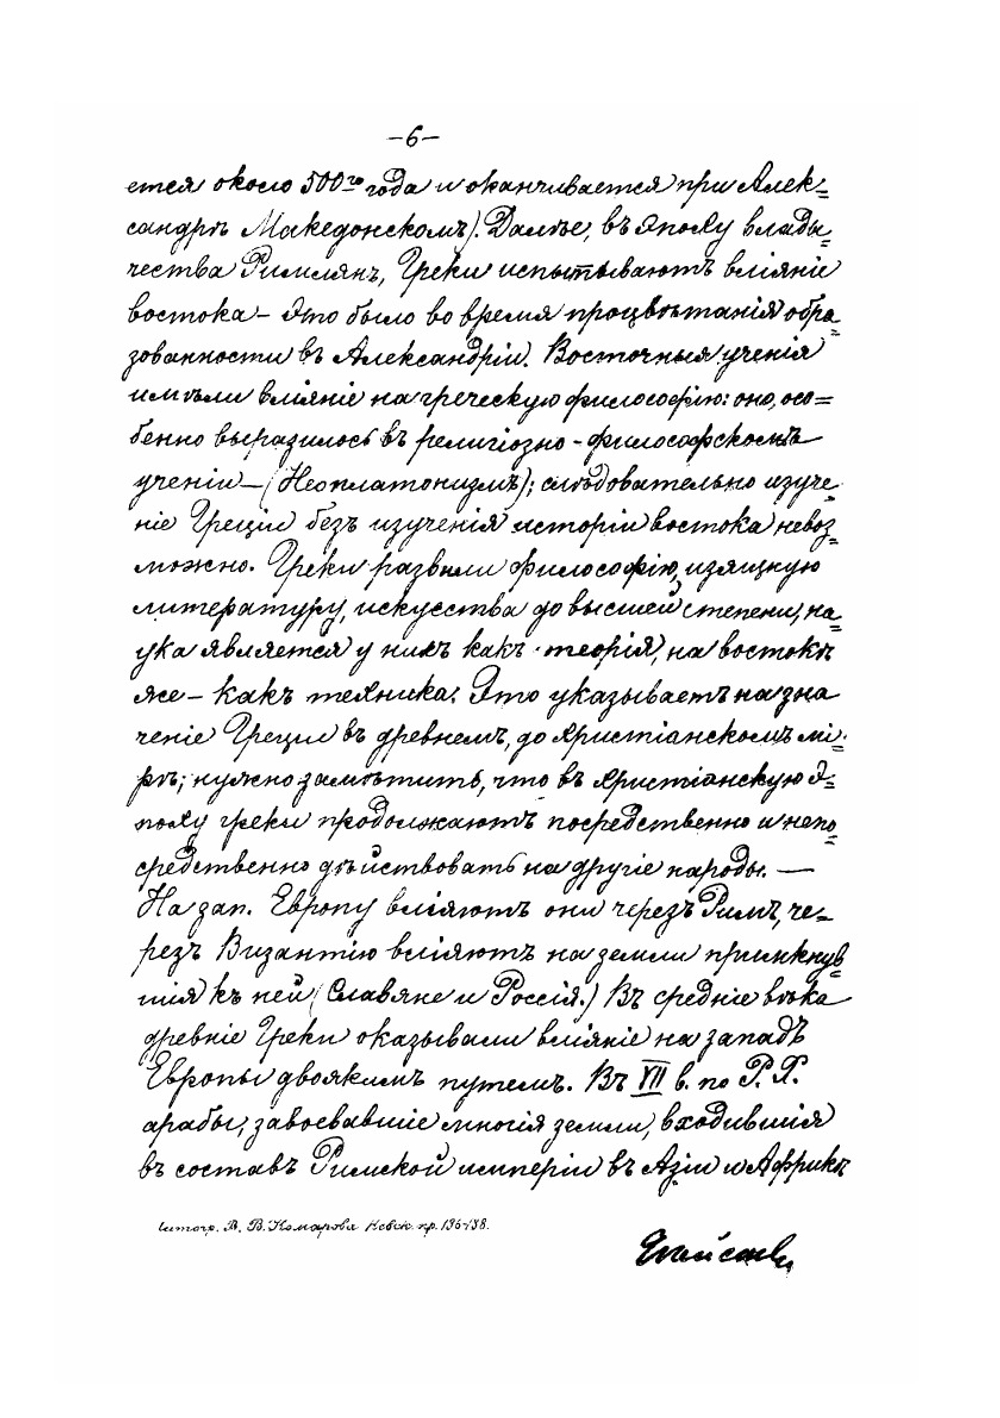 –6–
ется около 500го года и оканчивается при Алек=
сандрѣ Македонскомъ). Далѣе, въ эпоху влады=
чества Римлянъ, Греки испытываютъ вліяніе
востока – это было во время процвѣтанія обра=
зованности въ Александріи. Восточныя ученія
имѣли вліяніе на греческую философію: оно, осо=
бенно выразилось въ религіозно-философскомъ
ученіи – (Неоплатонизмъ); слѣдовательно изуче=
ніе Греціи безъ изученія исторіи востока невоз=
можно. Греки развили философію, изящную
литературу, искусства до высшей степени, на=
ука является у нихъ какъ теорія, на востокѣ
же – какъ техника. Это указываетъ на зна
ченіе Греціи въ древнемъ, до Христіанскомъ мі=
рѣ; нужно замѣтить, что въ Христіанскую э=
поху греки продолжаютъ посредственно и непо=
средственно дѣйствовать на другіе народы. —
На зап. Европу вліяютъ они черезъ Римъ, че=
резъ Византію вліяютъ на земли примкнув=
шія къ ней (Славяне и Россія.) Въ средніе вѣка
древніе Греки оказывали вліяніе на западъ
Европы двоякимъ путемъ. Въ VII в. по Р. Х.
арабы, завоевавшіе многія земли, входившія
въ составъ Римской имперіи въ Азіи и Африкѣ
Литогр. В. Комарова Невск. пр. 136-138.